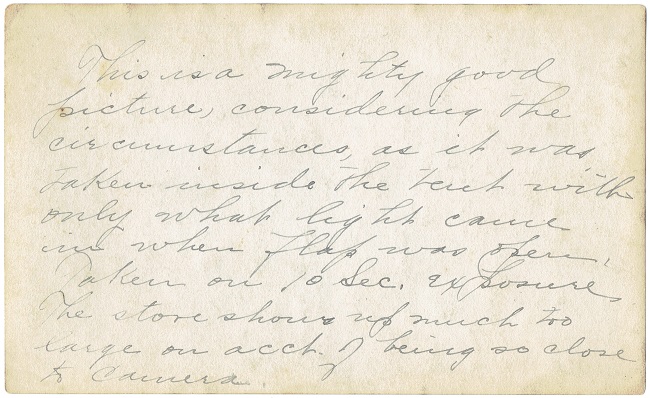 This is a mighty good
picture, considering the
circumstances, as it was
taken inside the tent with
only what light came
in when flap was open.
Taken on 10 Sec. exposure.
The stove shows up much too
large on acct. of being so close
to camera.